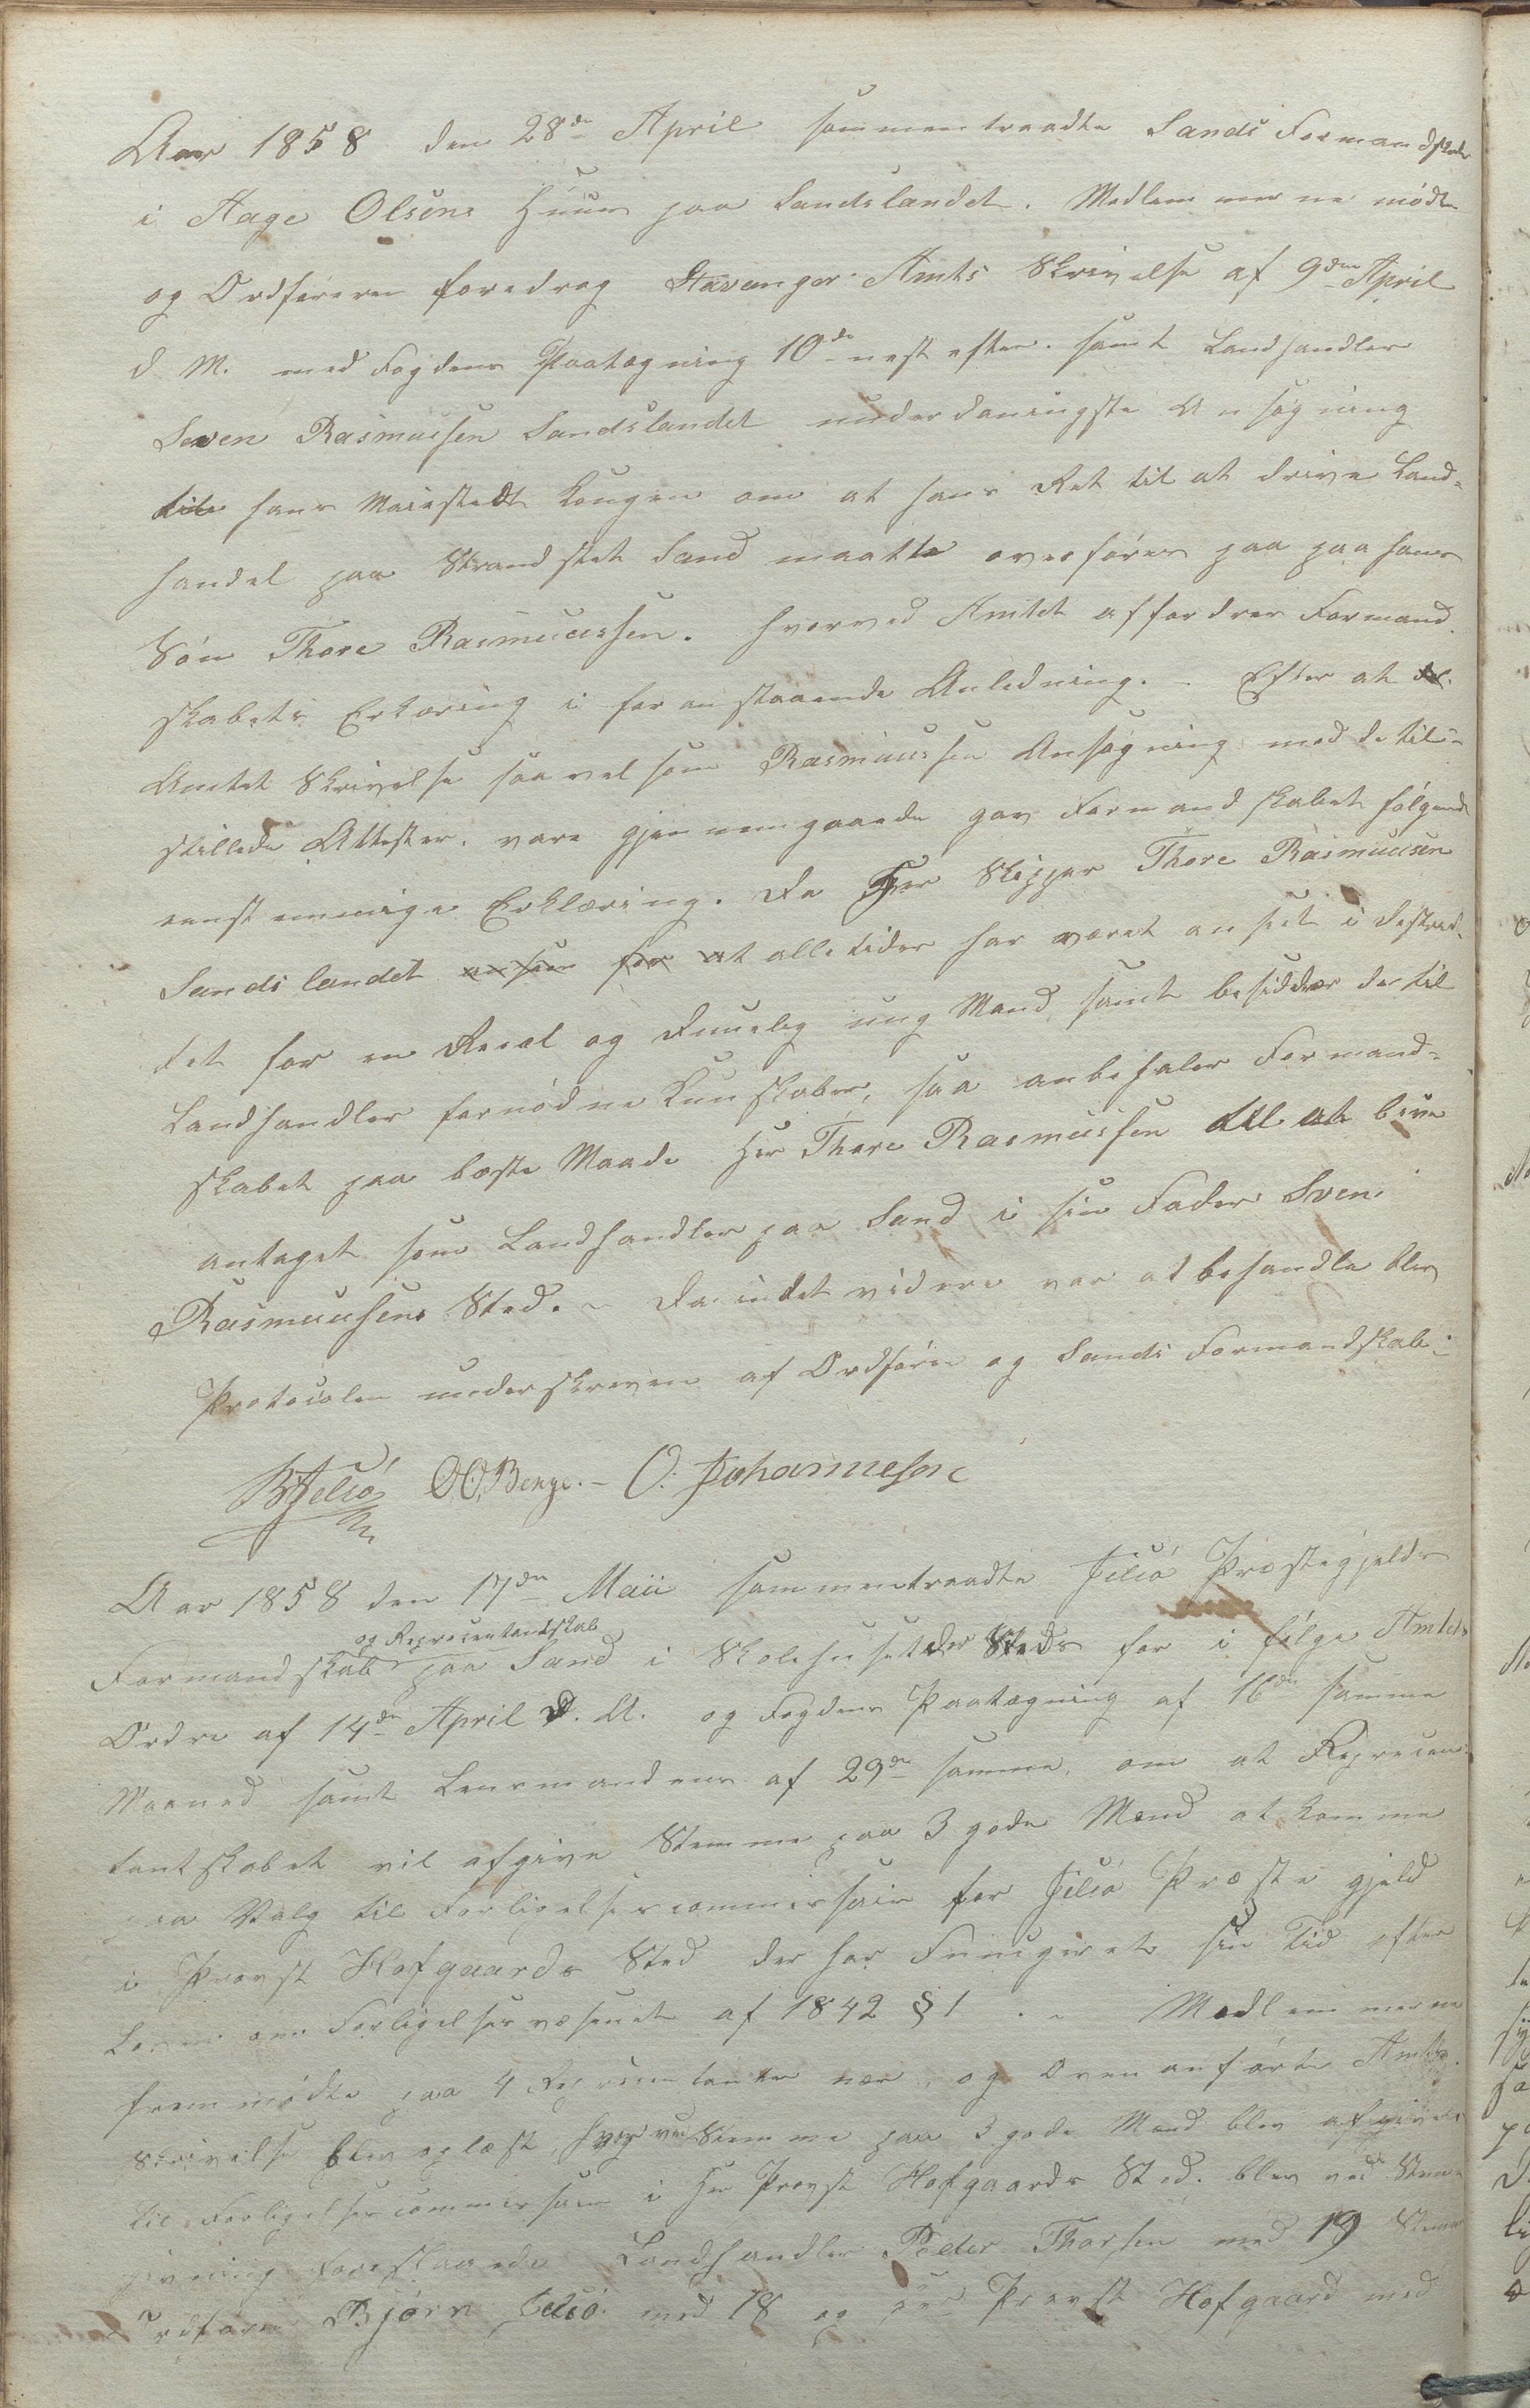 Aar 1858 den 28de April sammentraadte Sands Formandskab
i Aage Olsens Huus paa Sandslandet. Medlemmerne mødte
og Ordføreren foredrog Stavanger Amts Skrivelse af 9den April
d M. med Fogdens Paategning 10de nest efter. samt Landhandler
Sven Rasmussen Sandslandet underdanigste Ansøgning
til hans Maiestedt Kongen om at hans Ret til at drive Land-
handel paa Strandstet Sand maatte overføres paa paa hans
Søn Thore Rasmuussen. hvorved Amtet affordrer Formand
skabets Erkæring i foranstaaende Anledning. - Efter at
Amtet Skrivelse saavelsom Rasmuussen Ansøgning med de til-
stillede Attester. vare gjennemgaaede gav Formandskabet følgende
eenstemmige Erklæring. Da Her Skipper Thore Rasmuusen
Sandslandet at alletider har været anseet i destrec-
tet for en Reeal og duuelig ung Mand samt besidder dertil
Landhandler fornødne Kunskaber, saa anbefaler Formand-
skabet paa bæste Maade Her Thore Rasmussen til at bive
antaget som Landhandler paa Sand i sin Fader Sven
Rasmuusens Sted. - Da indet videre var at behandle blev
Protocolen underskreven af Ordfører og Sands Formandskab:
BJelsø OO,Berge. - O. Johannesen
Aar 1858 den 17de Maii sammentraadte Jelsø Præstegjelds
og Representandskab
Formandskab paa Sand i Skolehuset der Steds for i følge Amtets
Ordre af 14de April d. A. og Fogdens Paategning af 16de samme
Maaned samt Lensmandens af 29de samme, om at Represen-
tantskabet vil afgive Stemme paa 3 gode Mænd at komme
paa Valg til Forligelsescommissair for Jelsø Præstegjeld
i Provst Hofgaards Sted der har Funngeret sin Tid efter
Loven om Forligelsesvæsenet af 1842 § 1 . - Medlemmerne
fremmødte paa 4 Representanter nær, og Ovenanførte Amts
Skrivelse blev oplæst, hvorved Stemme paa 3 gode Mænd blev afgivet
til Forligelsescommissair i Her Provst Hofgaards Sted. blev ved Stemme
givning foreslaaede Landhandler Peder Thorsen med 19 Stemmer
Ordfører Bjørn Jelsø med 18 og Her Provst Hofgaard med